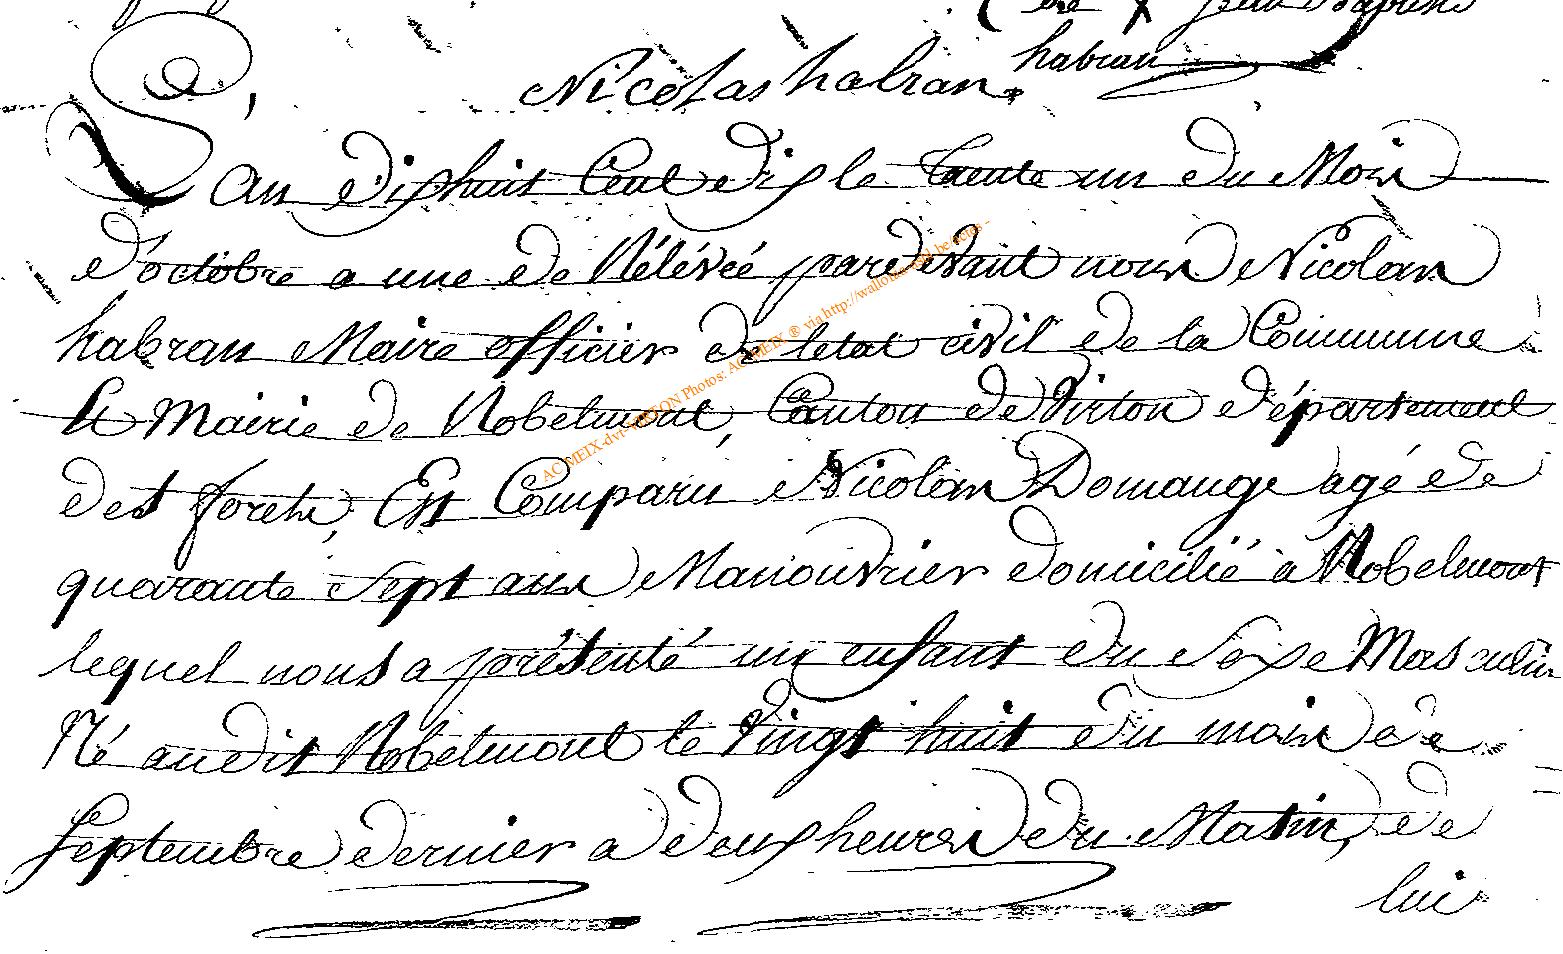 Jean Baptiste
habran
Nicolas habran
L'an dixhuit Cent dix le trente un du Mois
d'octobre a une de Rélévée pardevant nous Nicolas
habran Maire officier de letat civil de la Commune
Et Mairie de Robelmont, Canton de Virton département
des forets, Est Comparu Nicolas Domange agé de
quarante Sept ans Manouvrier domicilié a Robelmont
lequel nous a présenté un enfant du Sexe Masculin
Né audit Robelmont le vingt huit du mois de
Septembre dernier a deux heures du Matin, de
lui
AC MEIX-dvt-VIRTON Photos: AC MEIX ® via http://wallonica